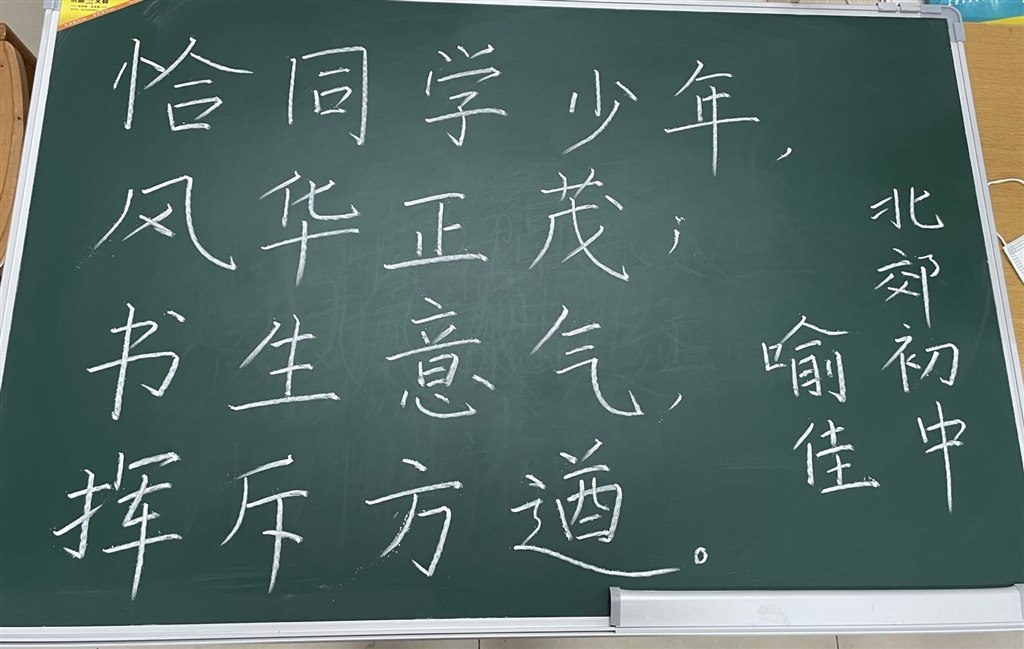 恰同学少年，
风华正茂；
书生意气，
挥斥方遒。
北郊初中
喻佳